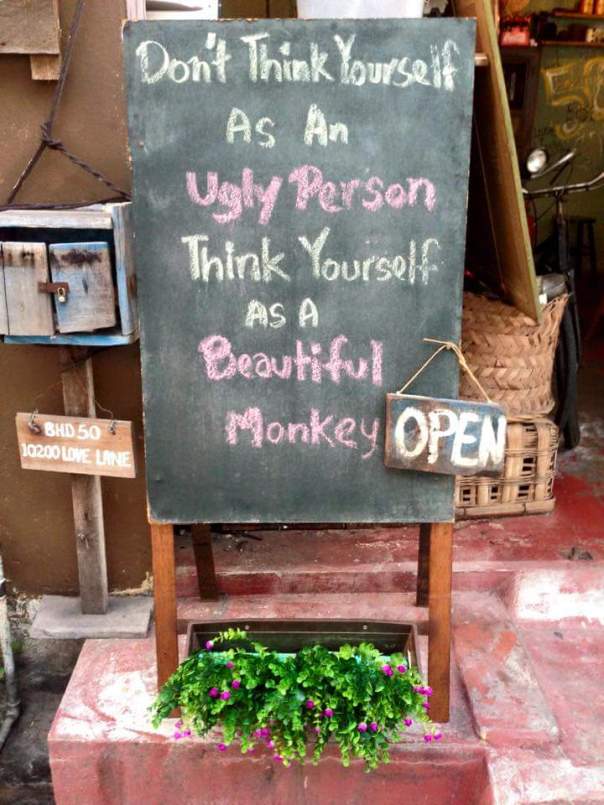 Don't Think Yourself
As An
Ugly Person
Think Yourself
AS A
Beautiful
Monkey
OPEN
BHD 50
10200 LOVE LANE